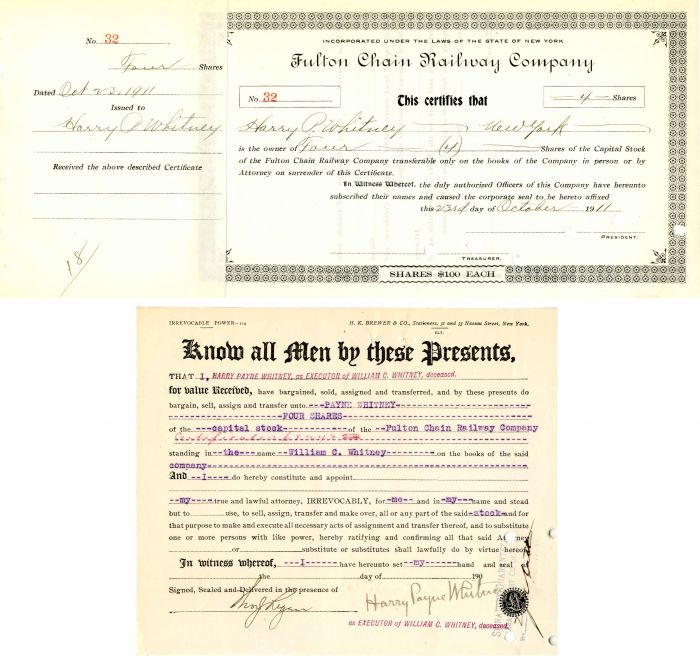 No. 32
Four Shares
Dated Oct 23, 1911
Issued to
Harry P. Whitney
Received the above described Certificate
18/
INCORPORATED UNDER THE LAWS OF THE STATE OF NEW YORK
Fulton Chain Railway Company
No. 32
This certifies that
4 Shares
Harry P. Whitney New York
is the owner of Four (4) Shares of the Capital Stock
of the Fulton Chain Railway Company transferable only on the books of the Company in person or by
Attorney on surrender of this Certificate.
In Witness Whereof, the duly authorized Officers of this Company have hereunto
subscribed their names and caused the corporate seal to be hereto affixed
this 23rd day of October 1911
PRESIDENT.
TREASURER.
SHARES $100 EACH
IRREVOCABLE POWER—114
H. K. BREWER & CO., Stationers, 31 and 33 Nassau Street, New York.
Know all Men by these Presents,
THAT I, HARRY PAYNE WHITNEY, as EXECUTOR of WILLIAM C. WHITNEY, deceased.
for value Received, have bargained, sold, assigned and transferred, and by these presents do
bargain, sell, assign and transfer unto PAYNE WHITNEY
FOUR SHARES
of the capital stock of the Fulton Chain Railway Company
standing in the name William C. Whitney on the books of the said
company
And I do hereby constitute and appoint
my true and lawful attorney, IRREVOCABLY, for me and in my name and stead
but to use, to sell, assign, transfer and make over, all or any part of the said stock and for
that purpose to make and execute all necessary acts of assignment and transfer thereof, and to substitute
one or more persons with like power, hereby ratifying and confirming all that said Attorney
or substitute or substitutes shall lawfully do by virtue hereof.
In witness whereof, I have hereunto set my hand and seal
the day of 190
Signed, Sealed and Delivered in the presence of
Harry Payne Whitney
as EXECUTOR of WILLIAM C. WHITNEY, deceased.